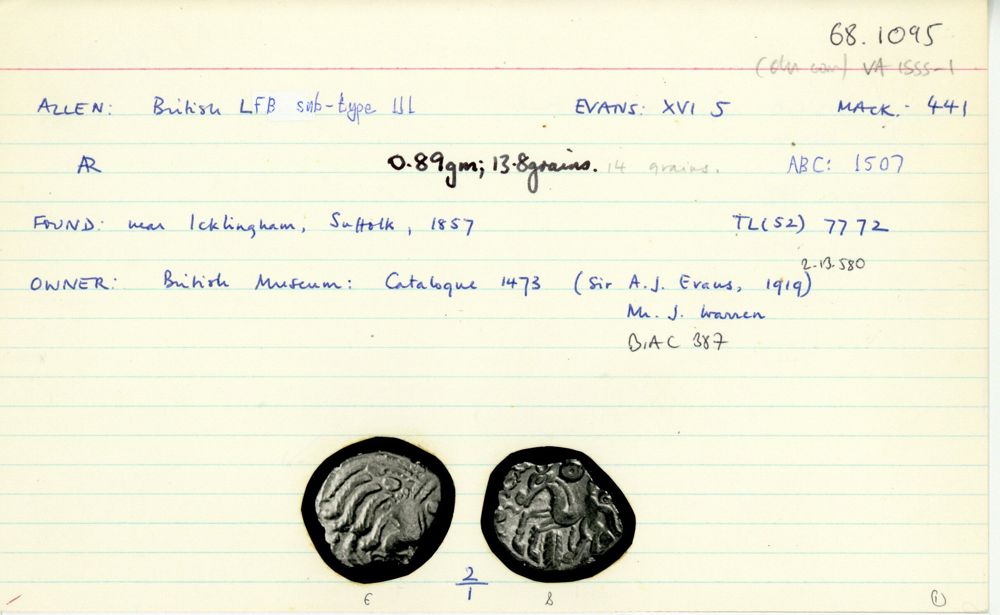 68.1095
VA 1555-1
ALLEN: British LFB sub-type III EVANS: XVI 5 MACK: 441
AR 0.89gm; 13.8grains. 14 grains. ABC: 1507
FOUND: near Icklingham, Suffolk, 1857 TL(52) 77 72
2.13.580
OWNER: British Museum: Catalogue 1473 (Sir A.J. Evans, 1919)
Mr. J. Warren
BMC 387
2
1
①